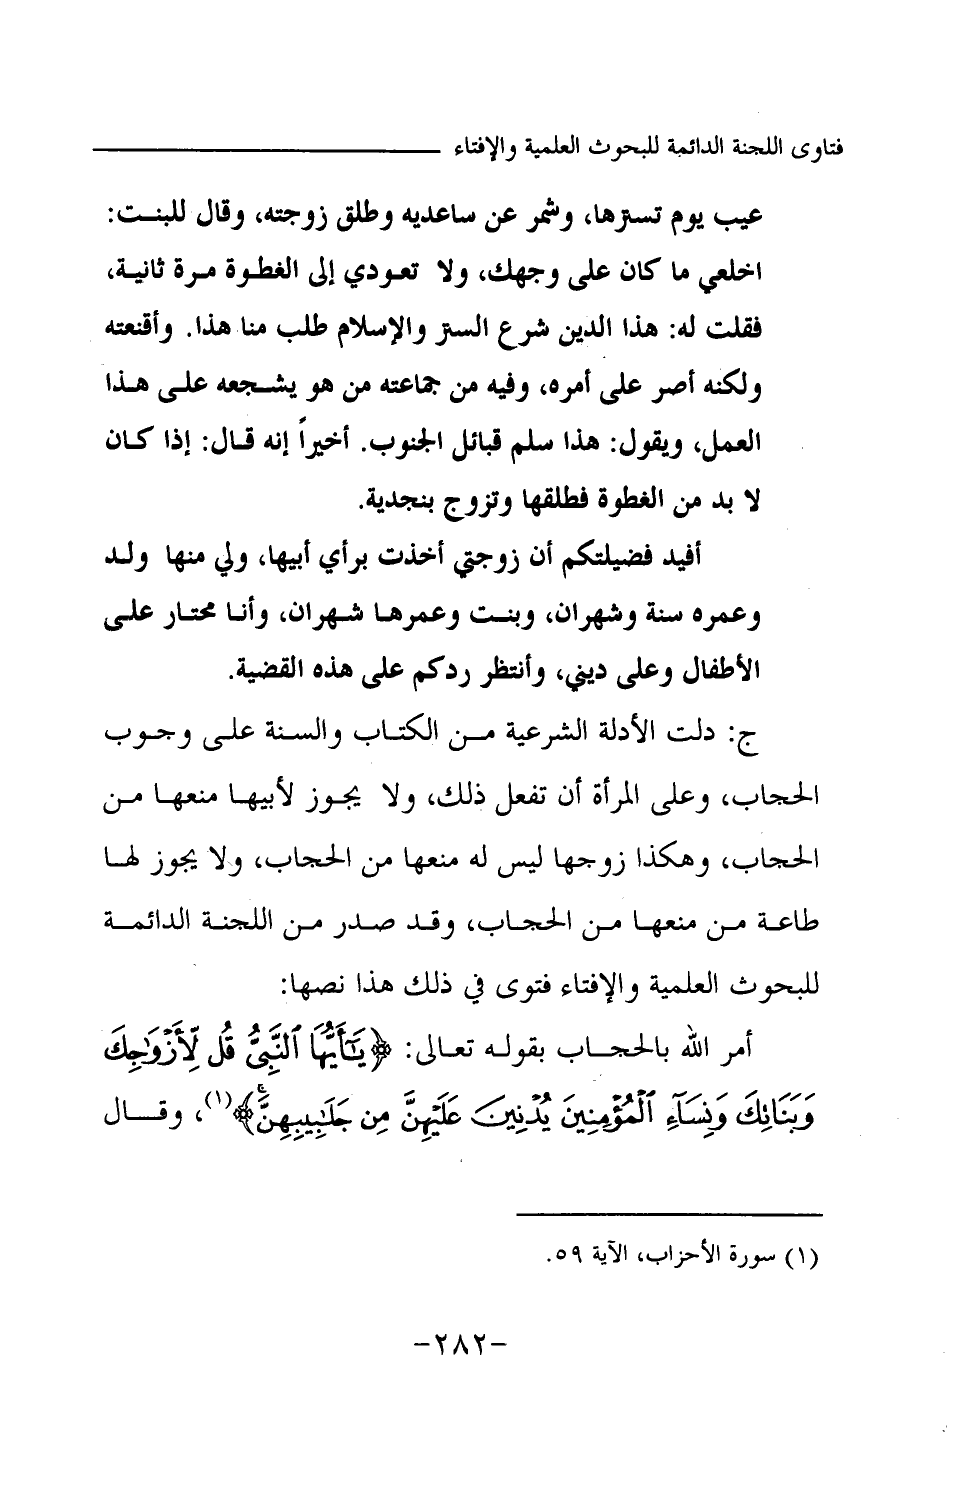 فتاوى اللجنة الدائمة للبحوث العلمية والإفتاء
عيب يوم تسترها، وشمر عن ساعديه وطلق زوجته، وقال للبنت:
اخلعي ما كان على وجهك، ولا تعودي إلى الغطوة مرة ثانية،
فقلت له: هذا الدين شرع الستر والإسلام طلب منا هذا. وأقنعته
ولكنه أصر على أمره، وفيه من جماعته من هو يشجعه على هذا
العمل، ويقول: هذا سلم قبائل الجنوب. أخيراً إنه قال: إذا كان
لا بد من الغطوة فطلقها وتزوج بنجدية.
أفيد فضيلتكم أن زوجتي أخذت برأي أبيها، ولي منها ولد
وعمره سنة وشهران، وبنت وعمرها شهران، وأنا محتار على
الأطفال وعلى ديني، وأنتظر ردكم على هذه القضية.
ج: دلت الأدلة الشرعية من الكتاب والسنة على وجوب
الحجاب، وعلى المرأة أن تفعل ذلك، ولا يجوز لأبيها منعها من
الحجاب، وهكذا زوجها ليس له منعها من الحجاب، ولا يجوز لها
طاعة من منعها من الحجاب، وقد صدر من اللجنة الدائمة
للبحوث العلمية والإفتاء فتوى في ذلك هذا نصها:
أمر الله بالحجاب بقوله تعالى: ﴿يَٰٓأَيُّهَا ٱلنَّبِيُّ قُل لِّأَزْوَٰجِكَ
وَبَنَاتِكَ وَنِسَآءِ ٱلْمُؤْمِنِينَ يُدْنِينَ عَلَيْهِنَّ مِن جَلَٰبِيبِهِنَّۚ﴾(١)، وقال
(١) سورة الأحزاب، الآية ٥٩.
-٢٨٢-